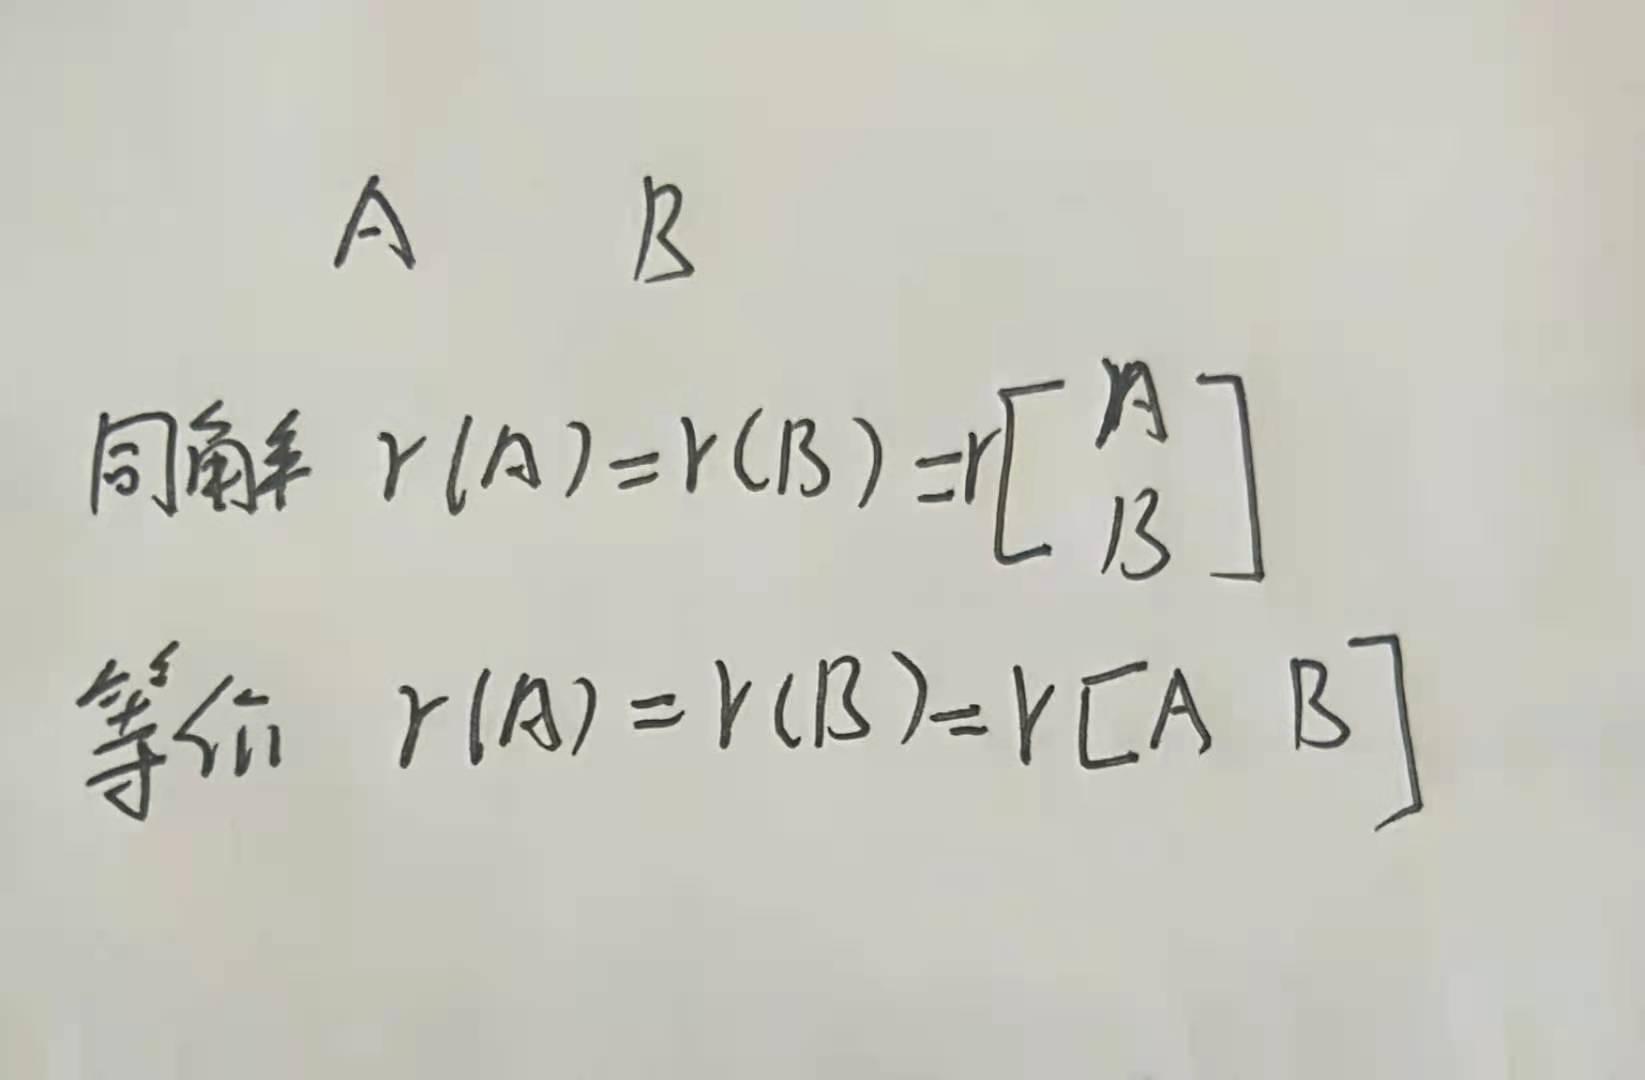 A B
同解 r(A)=r(B)=r[A
B]
等价 r(A)=r(B)=r[A B]